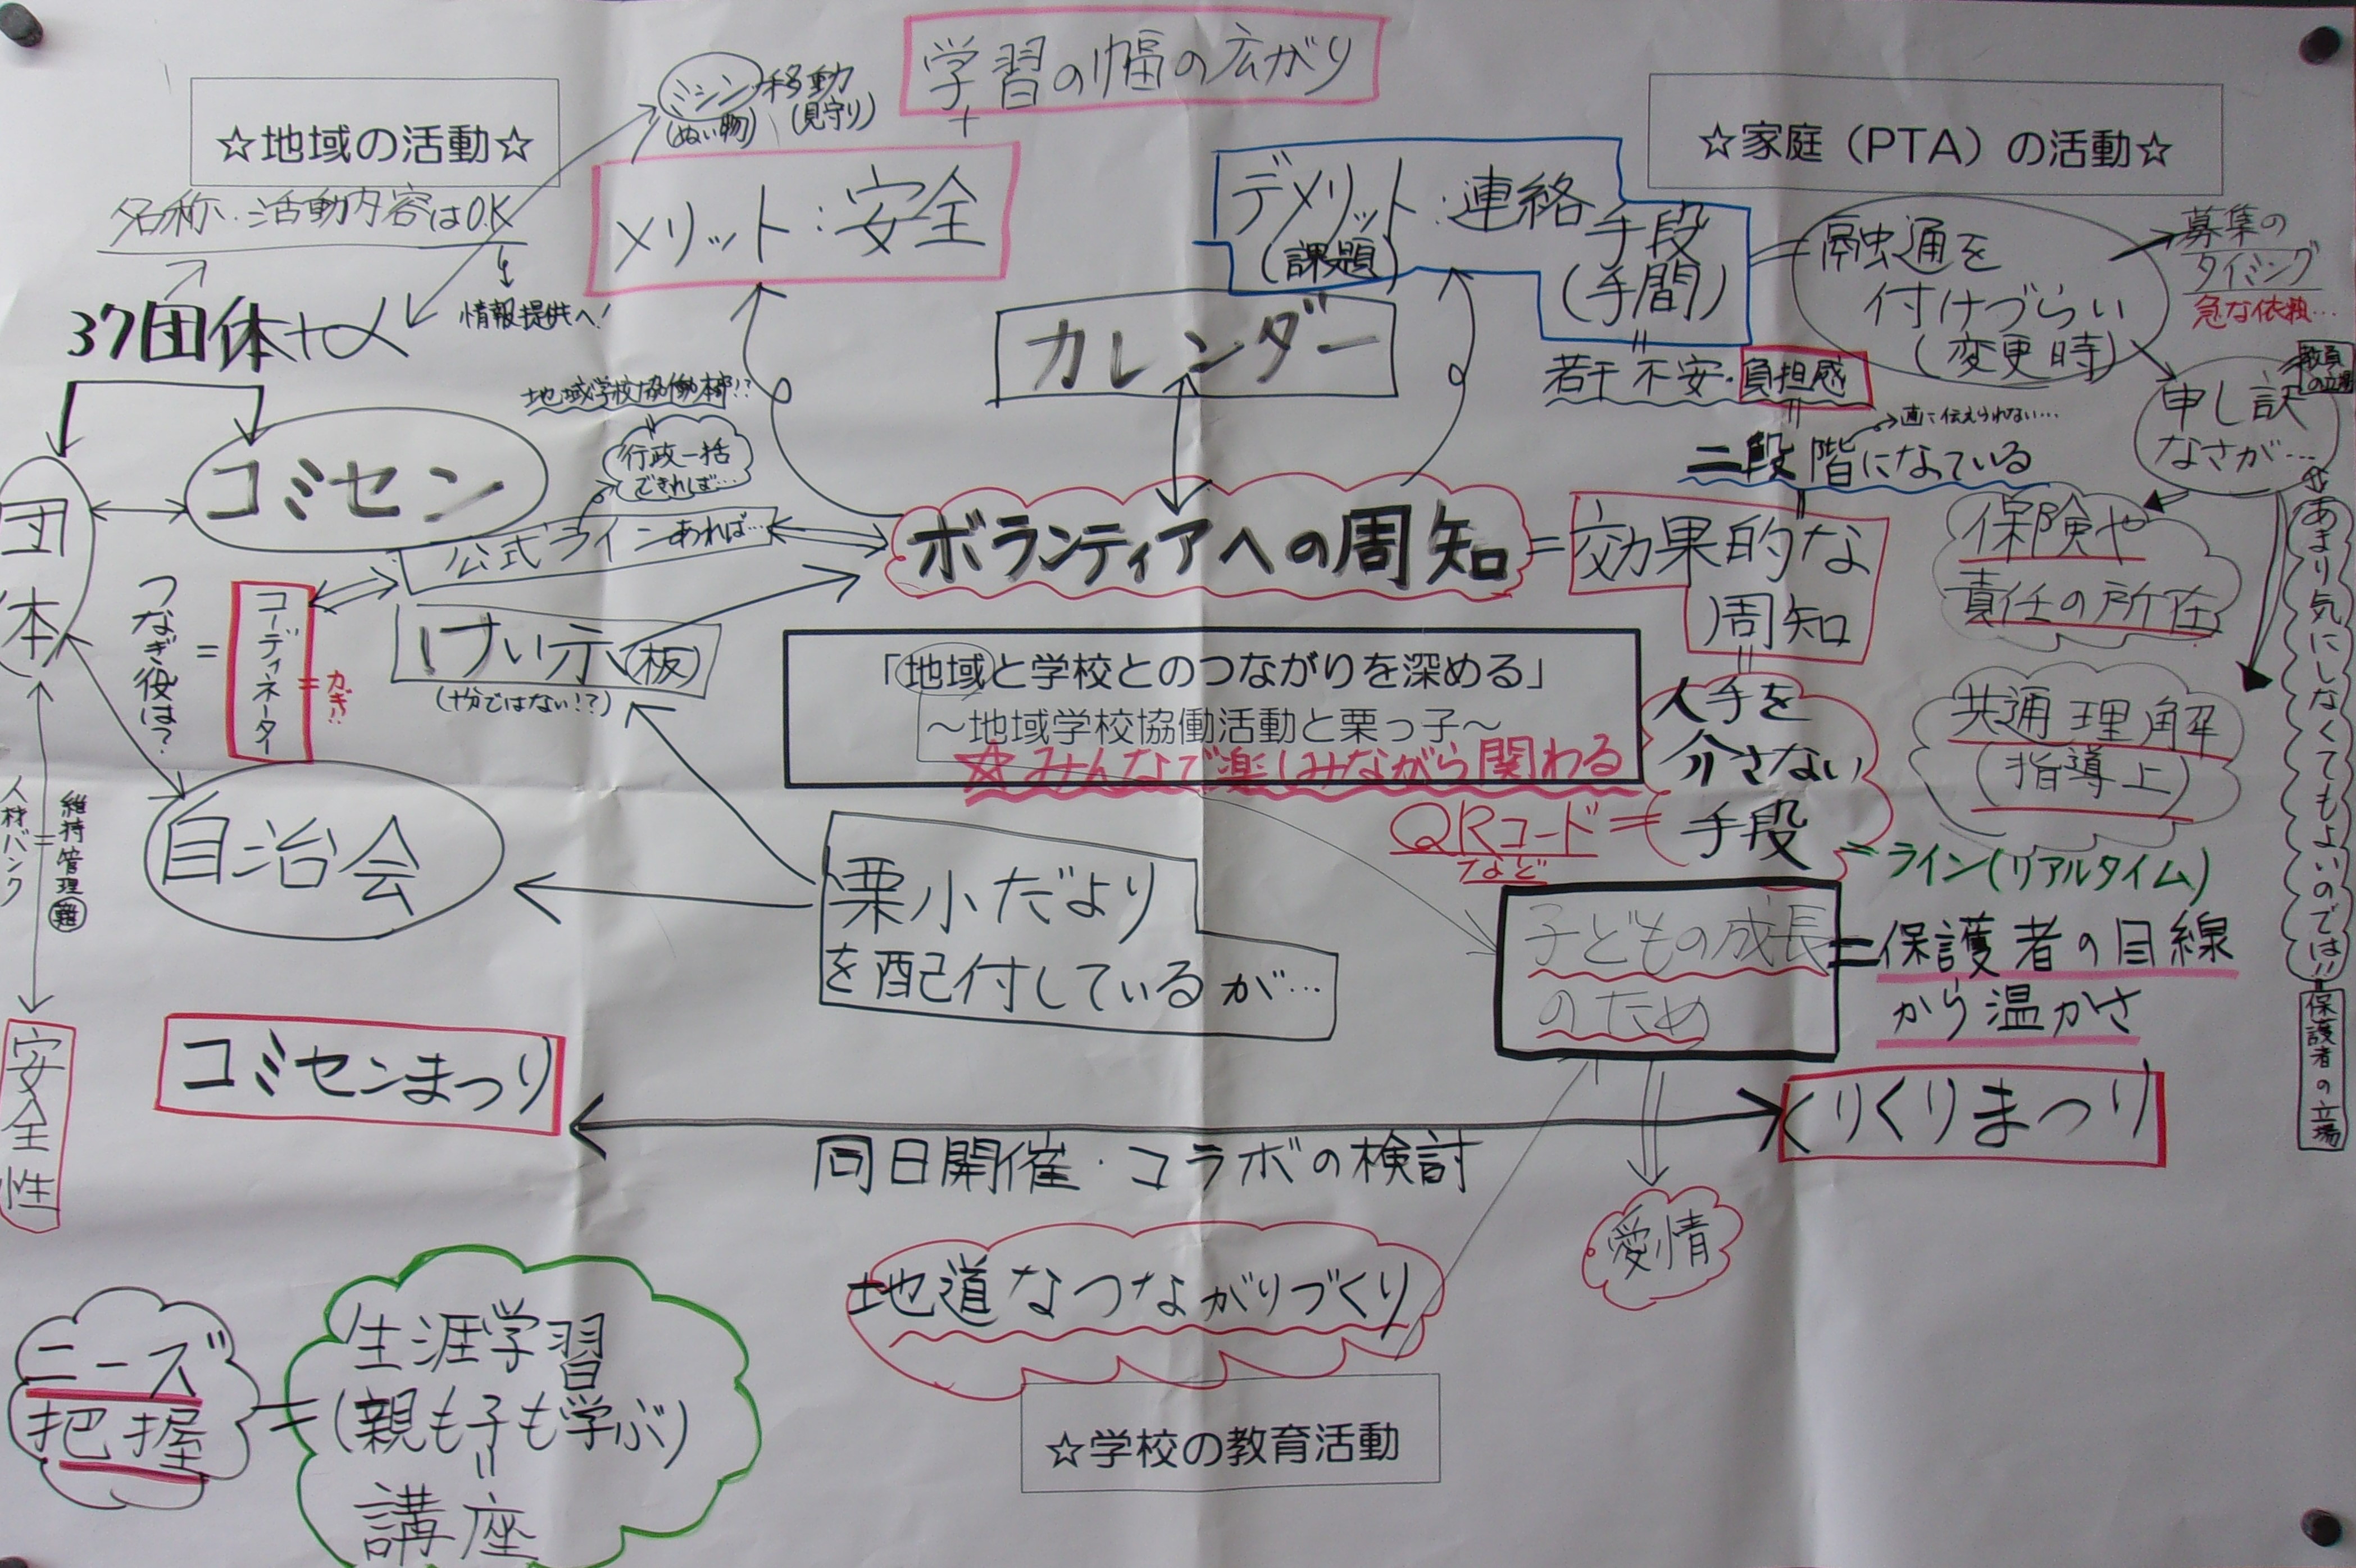 学習の幅の広がり
+
ミシン 移動
(ぬい物) (見守り)
☆地域の活動☆
名称・活動内容はOK
情報提供へ!
37団体+人
メリット:安全
デメリット:連絡
(課題)
手段
(手間)
☆家庭(PTA)の活動☆
融通を
付けづらい
(変更時)
募集の
タイミング
急な依頼…
教員
の立場
申し訳
なさが…
カレンダー
若干不安・負担感
二段階になっている
直に伝えられない…
地域学校協働本部!?
行政一括
できれば…
コミセン
団体
公式ラインあれば…
ボランティアへの周知
=
効果的な
周知
保険や
責任の所在
共通理解
(指導上)
あまり気にしなくてもよいのでは!!
保護者の立場
つなぎ役は?
=
コーディネーター
=カギ!!
けい示(板)
(十分ではない!?)
「地域と学校とのつながりを深める」
~地域学校協働活動と栗っ子~
☆みんなで楽しみながら関わる
人手を
介さない
手段
QRコード
など
=ライン(リアルタイム)
自治会
人材バンク
維持管理難
安全性
栗小だより
を配付しているが…
子どもの成長
のため
=保護者の目線
から温かさ
コミセンまつり
くりくりまつり
同日開催・コラボの検討
愛情
地道なつながりづくり
☆学校の教育活動
ニーズ
把握
=
生涯学習
(親も子も学ぶ)
講座